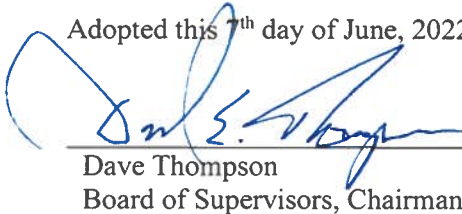 Adopted this 7th day of June, 2022
Dave E. Thompson
Dave Thompson
Board of Supervisors, Chairman